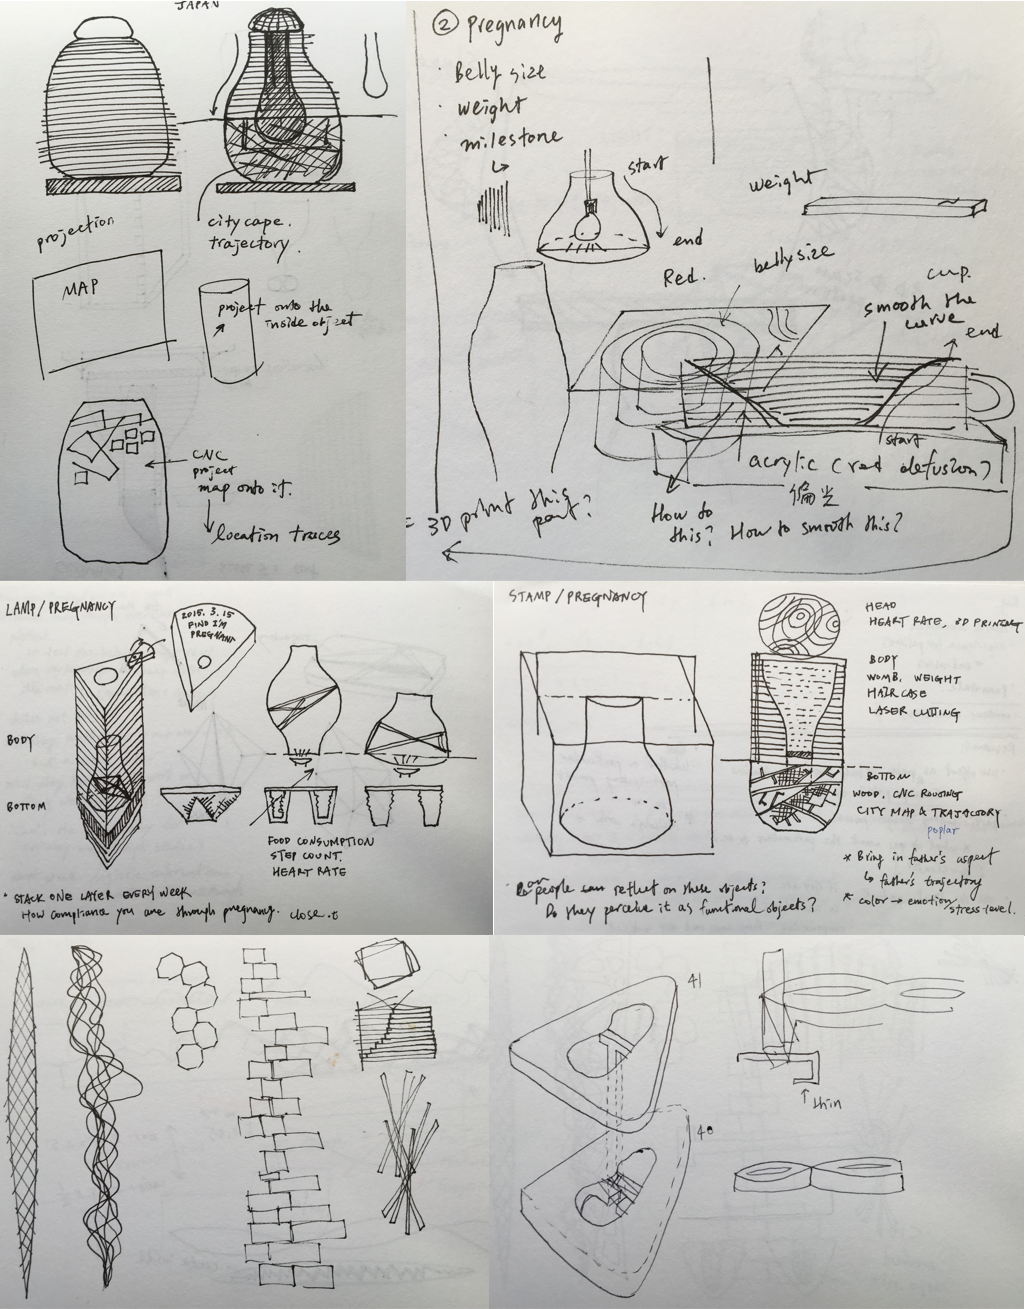 JAPAN
projection
citycape.
trajectory.
MAP
project onto the
inside object
CNC
project
map onto it.
location traces
② pregnancy
· Belly size
· weight
· milestone
start
end
weight
Red.
belly size
cup.
smooth the
curve
end
start
acrylic (red defusion)
偏光
3D print this
part?
How to
this? How to smooth this?
LAMP/PREGNANCY
2015. 3. 15
FIND I'M
PREGNANT
BODY
BOTTOM
FOOD CONSUMPTION
STEP COUNT.
HEART RATE
* STACK ONE LAYER EVERY WEEK
How compliance you are through pregnancy.
STAMP/PREGNANCY
HEAD
HEART RATE, 3D PRINTING
BODY
WOMB, WEIGHT
LASER CUTTING
BOTTOM
WOOD, CNC ROUTING
CITY MAP & TRAJACTORY
poplar
* Bring in father's aspect
↳ father's trajectory
* color → emotion/stress level.
people can reflect on these objects?
Do they perceive it as functional objects?
41
40
thin